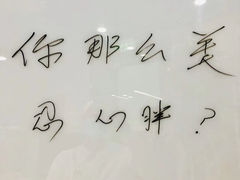 你那么美
忍心胖?